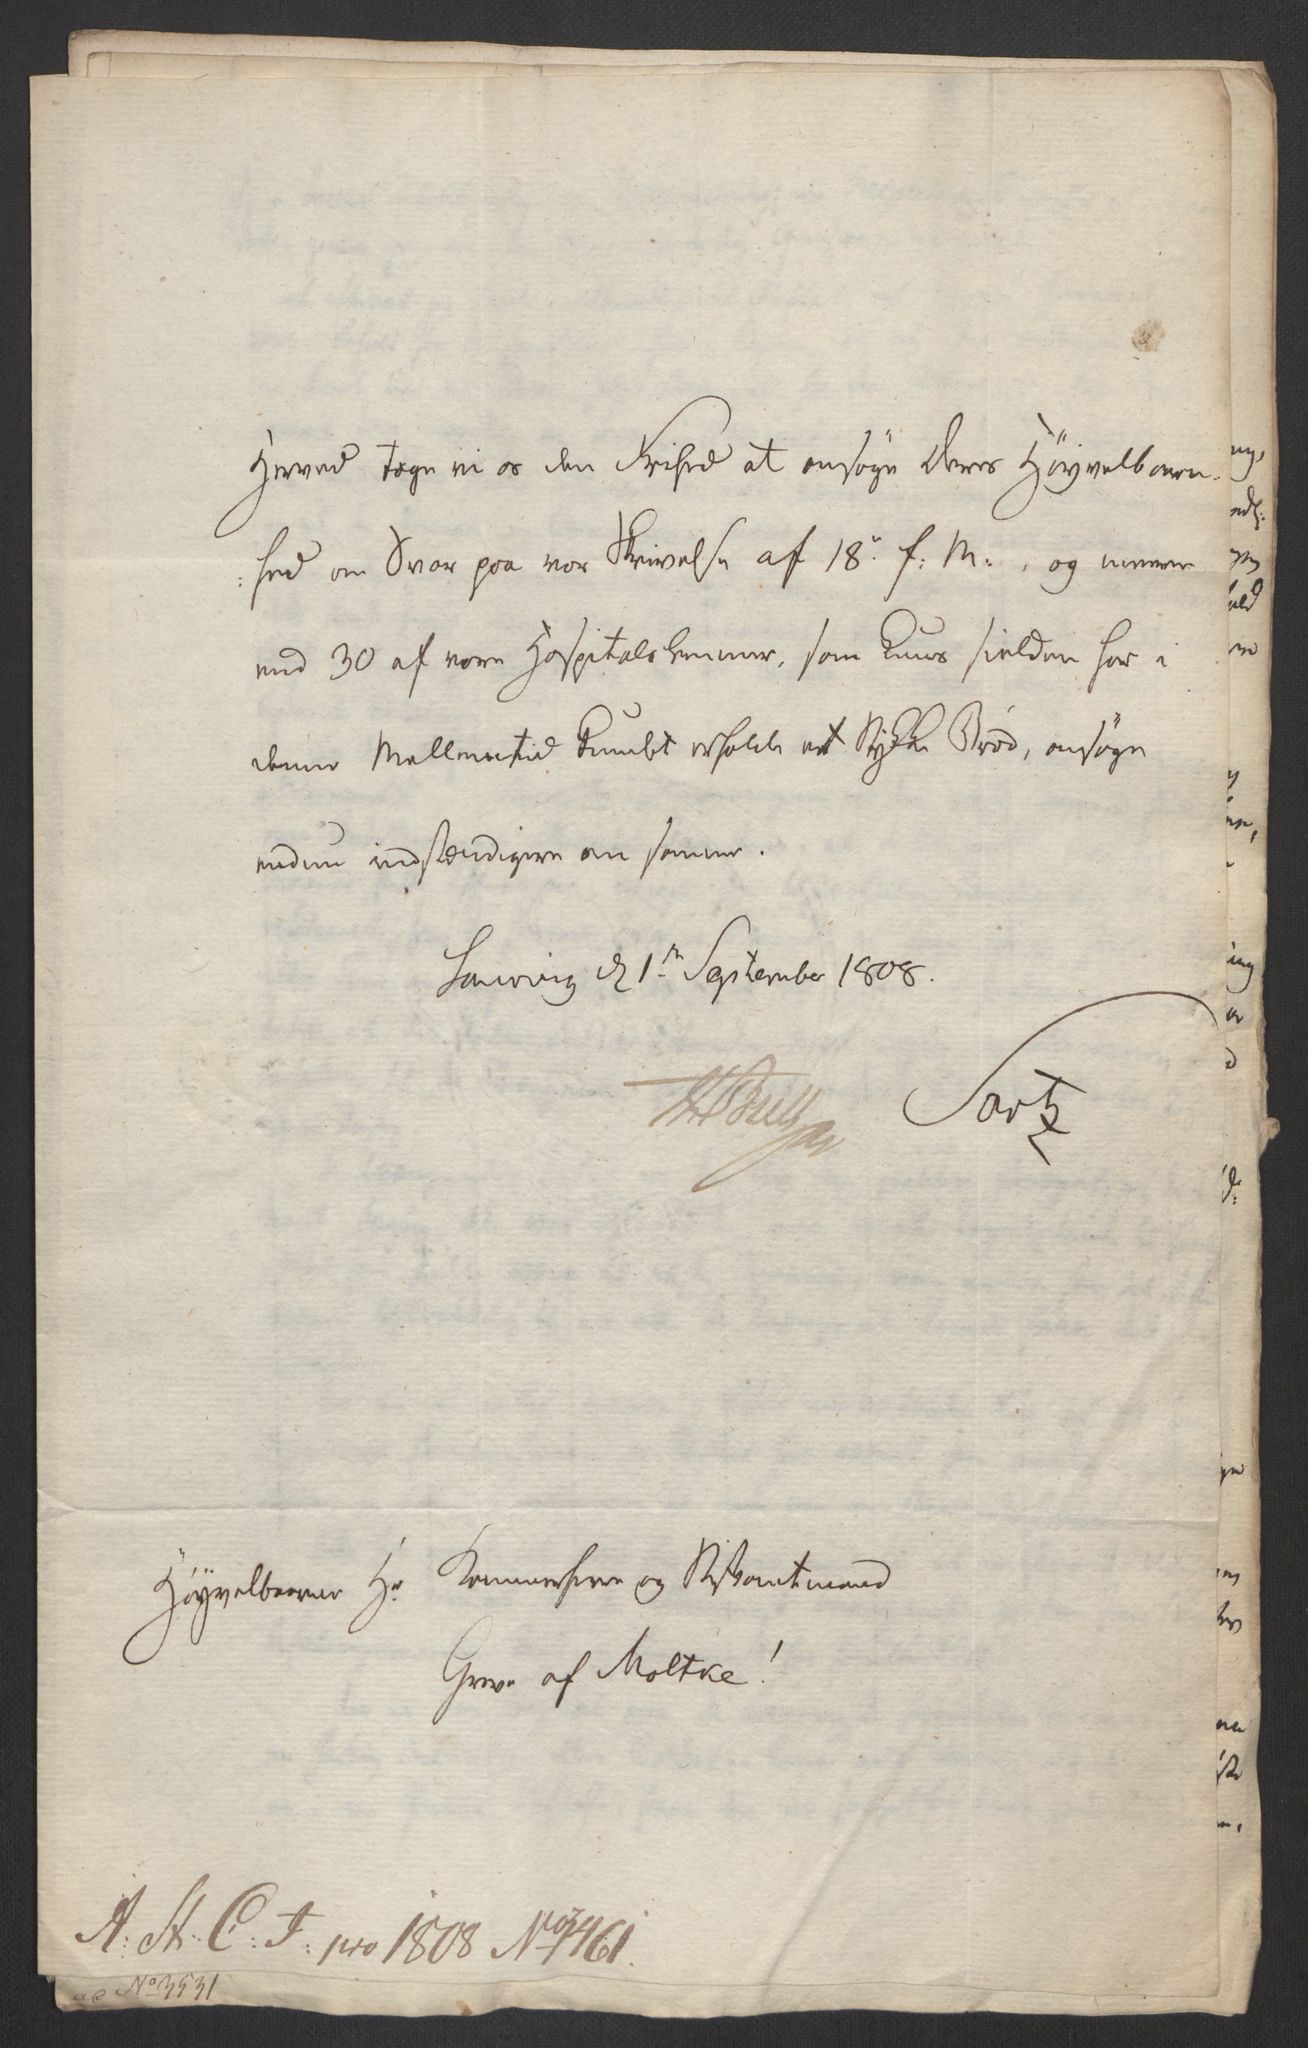 Herved tage vi os den Friehed at ansöge Deres Höyvelbaaren-
:hed om Svar paa vor Skrivelse af 18de f: M:, og meere
end 30 af vore Hospitalslemmer, som huus sielden har i
denne Mellemtid kundet erholde et Stykke Bröd, ansöge
endnu indstendigere om samme.
Laurvig d 1te September 1808.
Sartz
Höyvelbaarne Hr Kammerherre og Stiftamtmand
Greve af Moltke!
A: St: C: J: pro 1808 No 3461.
ad No 3531